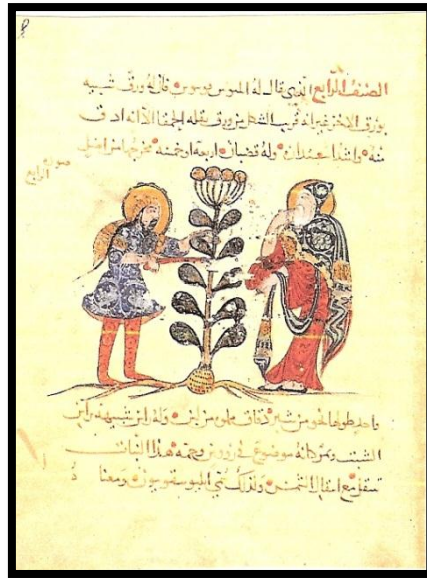 الصنف الرابع الذي يقال له المبوس يوسوس فان له ورق شبيه
بورق الاخر غير انه قريب الشكل من ورق بقله الحمقا الا انه ادق
منه واشد اعمدة وله قضبان اربعة او خمسة مخرجها من اصل
صورة الرابع
واحد طولها نحو من شبر دقاق مملو من لبن وله راس شبيه براس
الشبث وثمر كانه موضوع في روس وجمة هذا النبات
تنتقل مع انتقال الشمس ولذلك سمي المبوسقوبيوس ومعنا